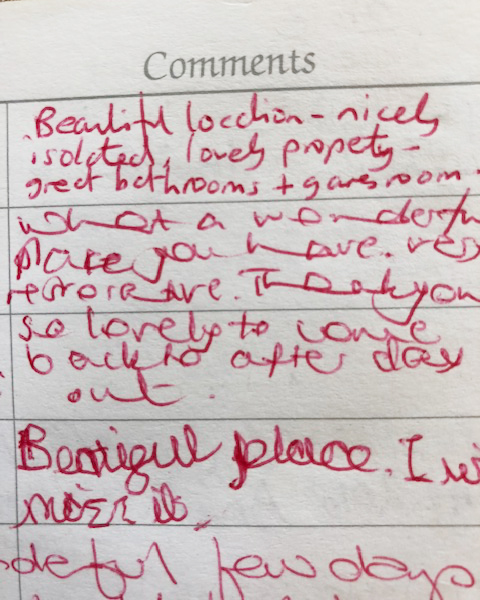 Comments
Beautiful location - nicely
isolated, lovely propety -
great bathrooms + games room.
what a wonderful
place you have. very
restorative. Thank you
so lovely to come
back to after day
out.
Beatiful place. I
few days